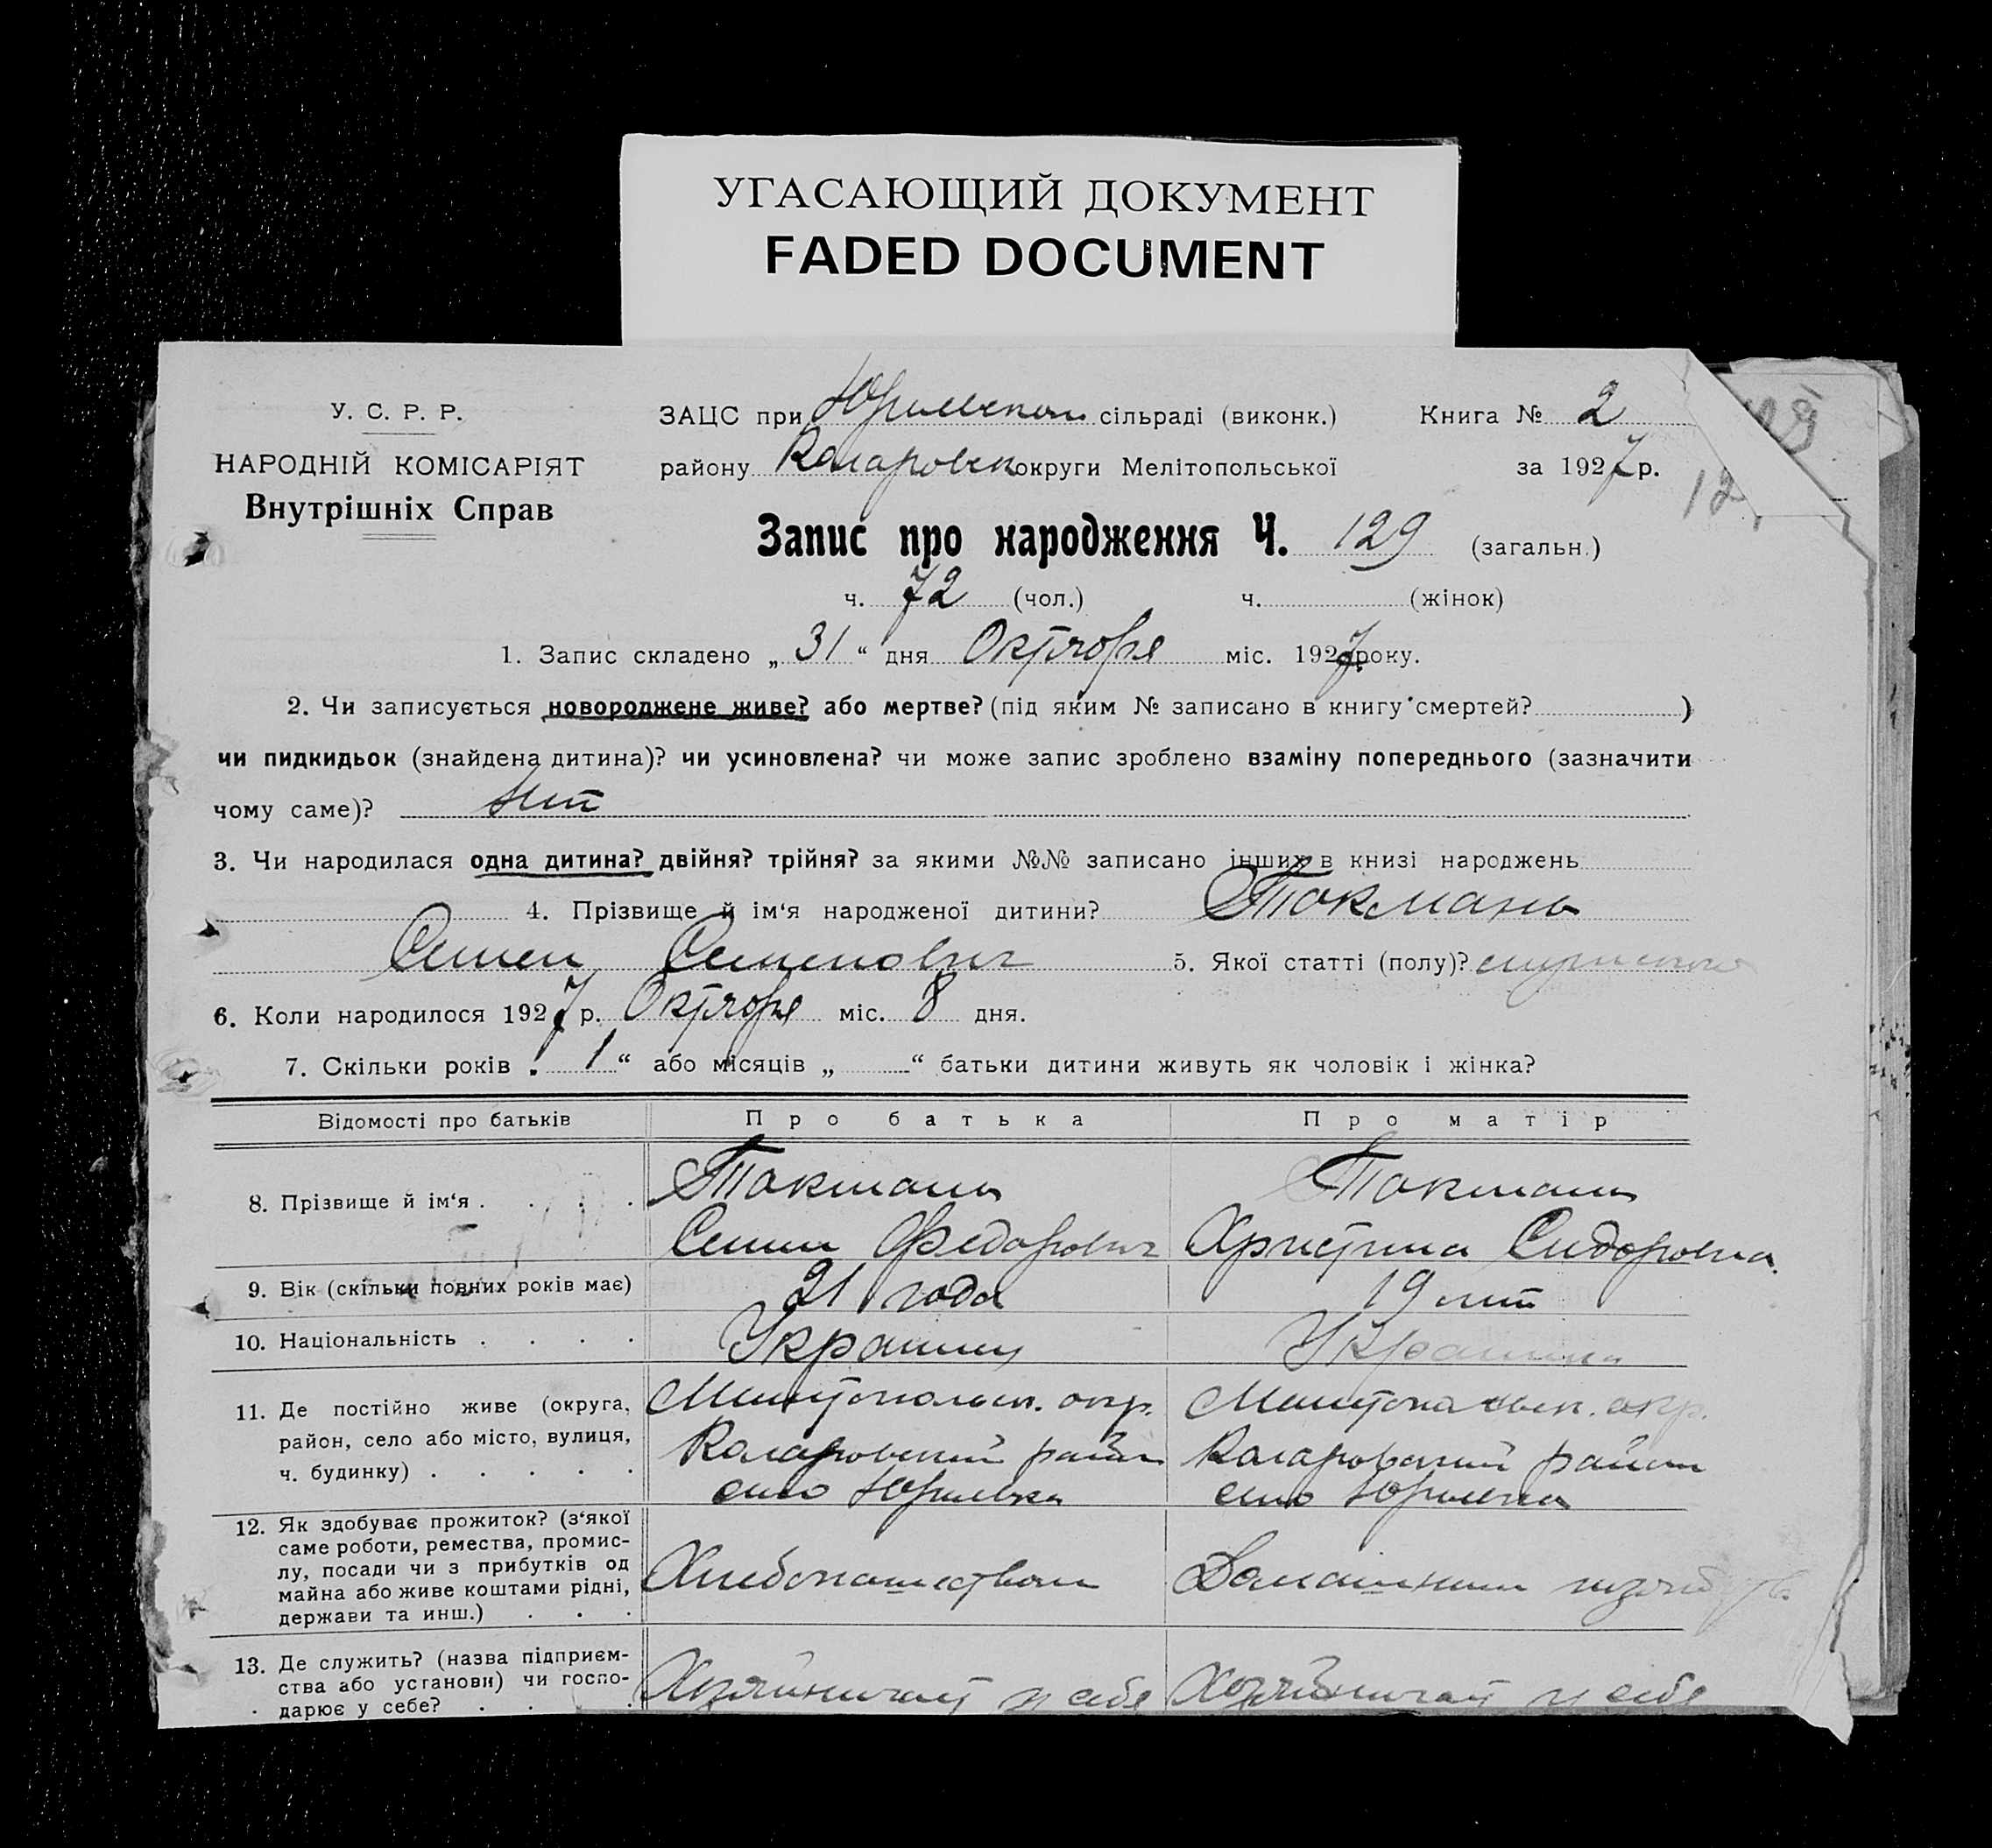 УГАСАЮЩИЙ ДОКУМЕНТ
FADED DOCUMENT
У. С. Р. Р.
НАРОДНІЙ КОМІСАРІЯТ
Внутрішніх Справ
ЗАЦС при Юрьевском сільраді (виконк.) Книга № 2
району Коларовск округи Мелітопольської за 1927 р.
12
Запис про народження Ч. 129 (загальн.)
ч. 72 (чол.) ч. (жінок)
1. Запис складено „ 31 “ дня Октября міс. 1927 року.
2. Чи записується новороджене живе? або мертве? (під яким № записано в книгу смертей? )
чи пидкидьок (знайдена дитина)? чи усиновлена? чи може запис зроблено взаміну попереднього (зазначити
чому саме)? нет
3. Чи народилася одна дитина? двійня? трійня? за якими №№ записано інших в книзі народжень
4. Прізвище й ім‘я народженої дитини? Токмань
Семен Семенович 5. Якої статті (полу)?
6. Коли народилося 1927 р. Октября міс. 8 дня.
7. Скільки років „ 1 “ або місяців „ “ батьки дитини живуть як чоловік і жінка?
Відомості про батьків Про батька Про матір
8. Прізвище й ім‘я . . . . Токмань Токмань
Семен Федорович Христина Сидоровна
9. Вік (скільки повних років має) 21 года 19 лет
10. Національність . . . . Украинец Украинка
11. Де постійно живе (округа, Мелитопольск. окр. Мелитопольск. окр.
район, село або місто, вулиця, Коларовский район Коларовский район
ч. будинку) . . . . . село Юрьевка село Юрьевка
12. Як здобуває прожиток? (з‘якої
саме роботи, ремества, промис-
лу, посади чи з прибутків од
майна або живе коштами рідні, Хлебопашеством Домашним
держави та инш.) . . .
13. Де служить? (назва підприєм-
ства або установи) чи госпо- Хозяйничает у себя Хозяйничает у себя
дарює у себе? . . .